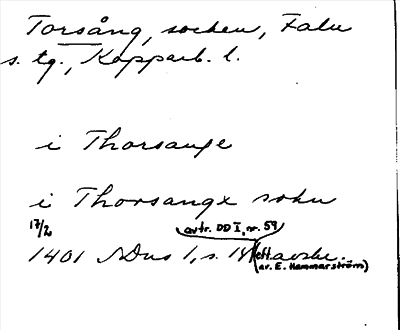 Torsång, socken, Falu
s. tg., Kopparb. l.
i Thorsange
i Thorsangx sokn
17/2 avtr. DD I, nr. 59
1401 SDns 1, s. 14 eft. avskr.
(av. E. Hammarström)